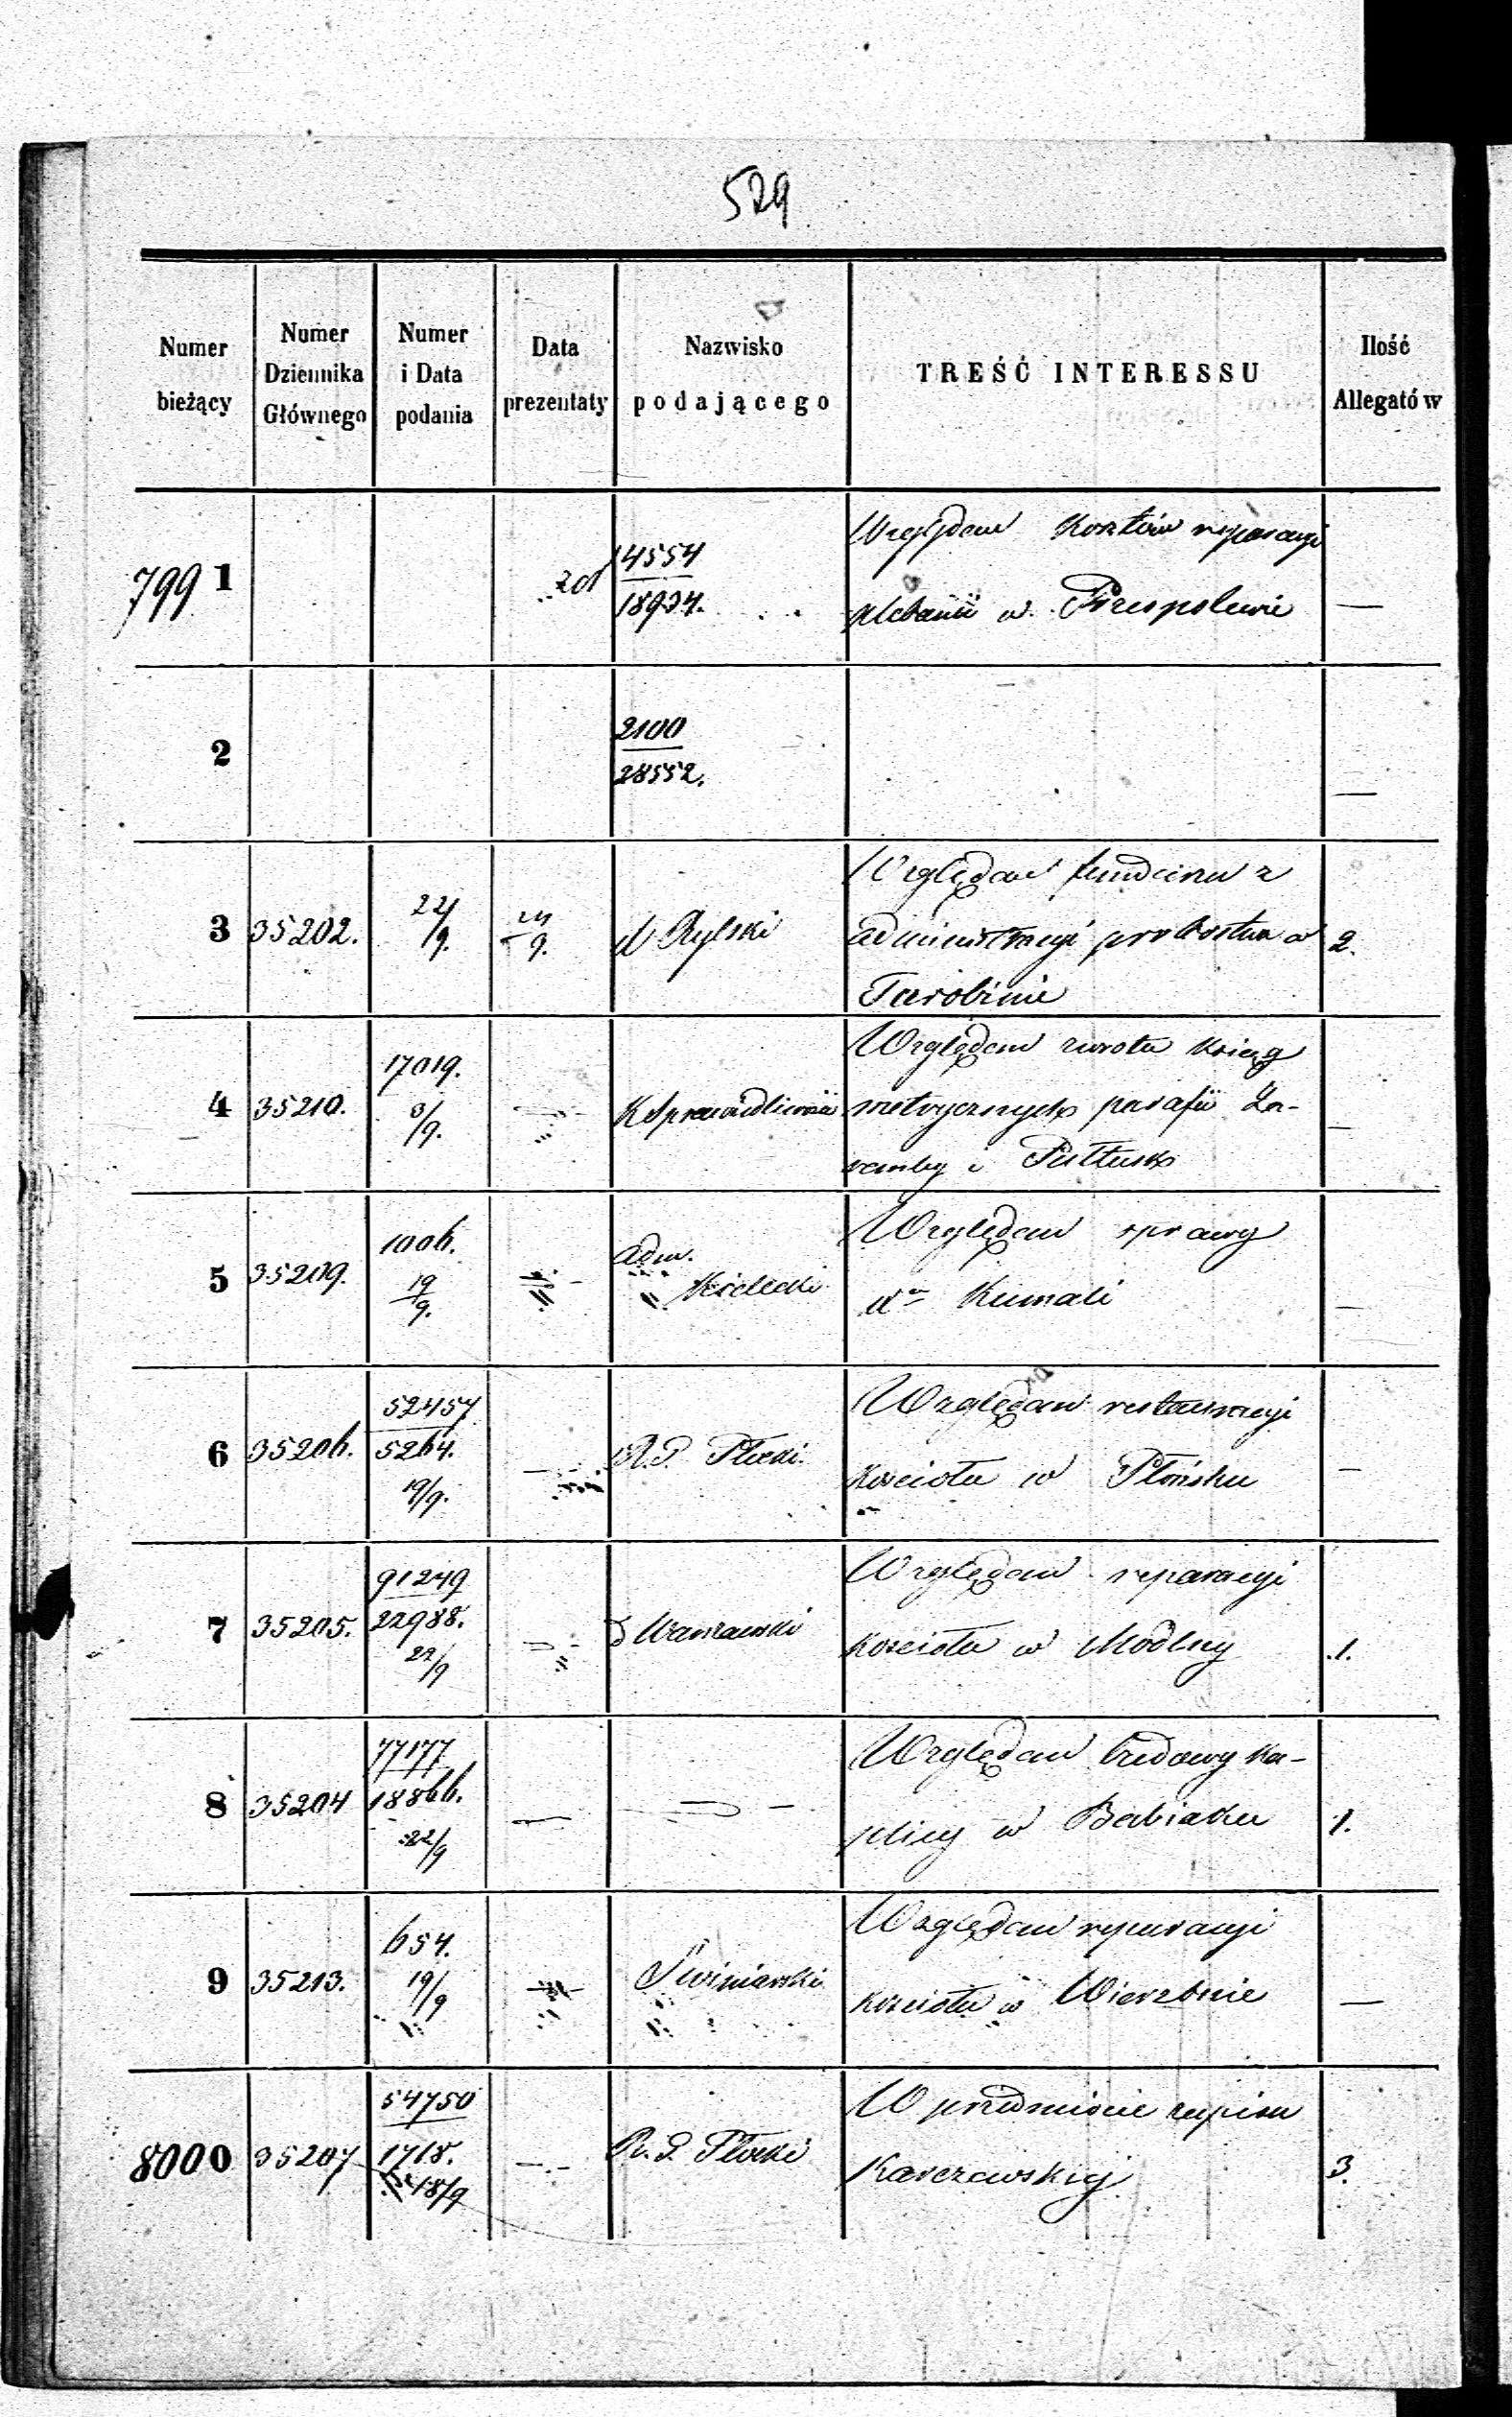 529
Numer bieżący | Numer Dziennika Głównego | Numer i Data podania | Data prezentaty | Nazwisko podającego | TREŚĆ INTERESSU | Ilość Allegatów
7991 | | | zd | 14554 / 18934. | Względem kosztów reparacyi
plebanii w | —
2 | | | | 2100 / 28552. | | —
3 | 35202. | 22/9. | 24/9. | Rylski | Względem funduszu z
administracyi probostwa w | 2.
Tarobinie
4 | 35210. | 17019. 3/9. | — | K Sprawiedliwości | Względem zwrotu ksiąg
metrycznych parafii Za-
remby i Pułtusk | —
5 | 35209. | 1006. 19/9. | — | Adm. Kielecki | Względem sprawy
Xa Kumali | —
6 | 35206. | 52457 / 5264. 19/9. | — | R. P. Płocki. | Względem restauracyi
kościoła w Płońsku | —
7 | 35205. | 91249 / 22988. 22/9 | — | Warszawski | Względem reparacyi
kościoła w Modlny | 1.
8 | 35204 | 77177 / 18866. 22/9 | — | — | Względem budowy ka-
plicy w Babiaku | 1.
9 | 35213. | 654. 19/9 | — | Świniarski | Względem reparacyi
kościoła w Wierzbnie | —
8000 | 35207 | 54750 / 1718. 18/9 | — | R. P. Płocki | W przedmiocie zapisu
Karczewskiej | 3.